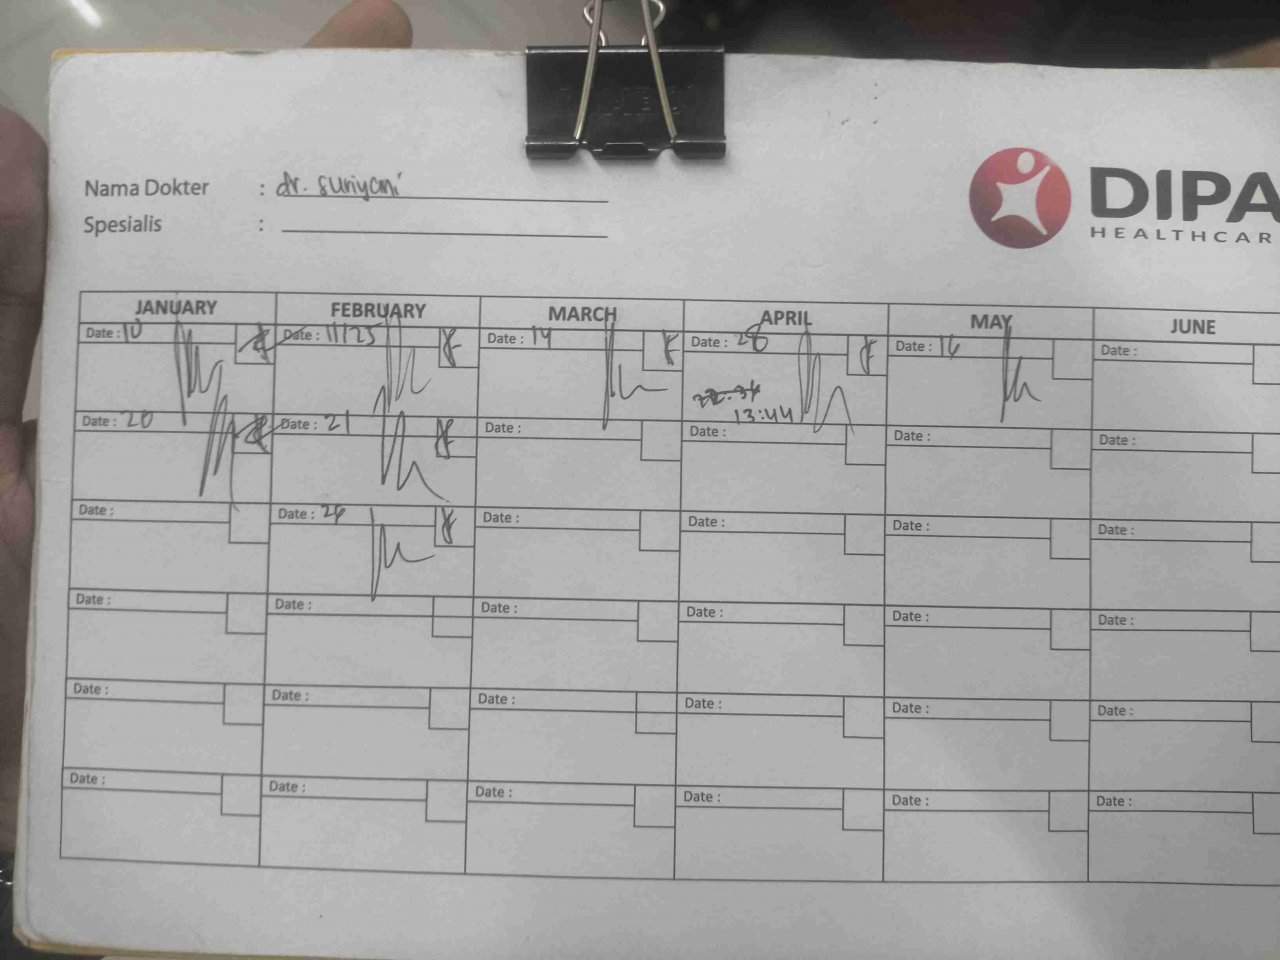 Nama Dokter : dr. Suriyani
Spesialis :
DIPA
HEALTHCAR
JANUARY FEBRUARY MARCH APRIL MAY JUNE
Date : 10 Date : 11/25 Date : 14 Date : 28 Date : 16 Date :
13:44
Date : 20 Date : 21 Date : Date : Date : Date :
Date : Date : Date : Date : Date : Date :
Date : Date : Date : Date : Date : Date :
Date : Date : Date : Date : Date : Date :
Date : Date : Date : Date : Date : Date :